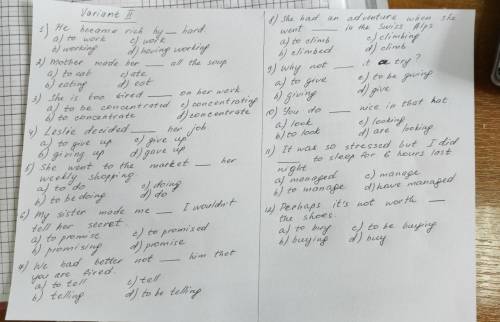 Variant II
1) He became rich by __ hard.
a) to work c) work
b) working d) having working
2) Mother made her __ all the soup
a) to eat c) ate
b) eating d) eat
3) She is too tired __ on her work
a) to be concentrated c) concentrating
b) to concentrate d) concentrate
4) Leslie decided __ her job
a) to give up c) give up
b) giving up d) gave up
5) She went to the market __ her
weekly shopping
a) to do c) doing
b) to be doing d) do
6) My sister made me __ I wouldn't
tell her secret.
a) to promise c) to promised
b) promising d) promise
7) We had better not __ him that
you are fired.
a) to tell c) tell
b) telling d) to be telling
8) She had an adventure when she
went __ in the Swiss Alps
a) to climb c) climbing
b) climbed d) climb
9) Why not __ it a try?
a) to give c) to be giving
b) giving d) give
10) You do __ nice in that hat
a) look c) looking
b) to look d) are looking
11) It was so stressed but I did
__ to sleep for 6 hours last
night
a) managed c) manage
b) to manage d) have managed
12) Perhaps it's not worth __
the shoes.
a) to buy c) to be buying
b) buying d) buy